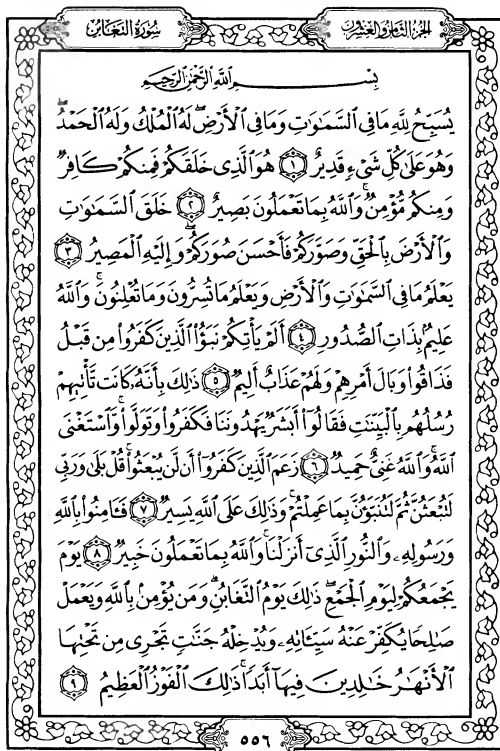 الجزء الثامن والعشرون
سورة التغابن
بِسْمِ اللَّهِ الرَّحْمَٰنِ الرَّحِيمِ
يُسَبِّحُ لِلَّهِ مَا فِي السَّمَٰوَٰتِ وَمَا فِي الْأَرْضِ ۖ لَهُ الْمُلْكُ وَلَهُ الْحَمْدُ ۖ
وَهُوَ عَلَىٰ كُلِّ شَىْءٍ قَدِيرٌ ١ هُوَ الَّذِى خَلَقَكُمْ فَمِنكُمْ كَافِرٌ
وَمِنكُم مُّؤْمِنٌ ۚ وَاللَّهُ بِمَا تَعْمَلُونَ بَصِيرٌ ٢ خَلَقَ السَّمَٰوَٰتِ
وَالْأَرْضَ بِالْحَقِّ وَصَوَّرَكُمْ فَأَحْسَنَ صُوَرَكُمْ ۖ وَإِلَيْهِ الْمَصِيرُ ٣
يَعْلَمُ مَا فِي السَّمَٰوَٰتِ وَالْأَرْضِ وَيَعْلَمُ مَا تُسِرُّونَ وَمَا تُعْلِنُونَ ۚ وَاللَّهُ
عَلِيمٌۢ بِذَاتِ الصُّدُورِ ٤ أَلَمْ يَأْتِكُمْ نَبَؤُا۟ الَّذِينَ كَفَرُوا۟ مِن قَبْلُ
فَذَاقُوا۟ وَبَالَ أَمْرِهِمْ وَلَهُمْ عَذَابٌ أَلِيمٌ ٥ ذَٰلِكَ بِأَنَّهُۥ كَانَت تَّأْتِيهِمْ
رُسُلُهُم بِالْبَيِّنَٰتِ فَقَالُوٓا۟ أَبَشَرٌ يَهْدُونَنَا فَكَفَرُوا۟ وَتَوَلَّوا۟ ۚ وَّاسْتَغْنَى
اللَّهُ ۚ وَاللَّهُ غَنِىٌّ حَمِيدٌ ٦ زَعَمَ الَّذِينَ كَفَرُوٓا۟ أَن لَّن يُبْعَثُوا۟ ۚ قُلْ بَلَىٰ وَرَبِّى
لَتُبْعَثُنَّ ثُمَّ لَتُنَبَّؤُنَّ بِمَا عَمِلْتُمْ ۚ وَذَٰلِكَ عَلَى اللَّهِ يَسِيرٌ ٧ فَـَٔامِنُوا۟ بِاللَّهِ
وَرَسُولِهِۦ وَالنُّورِ الَّذِىٓ أَنزَلْنَا ۚ وَاللَّهُ بِمَا تَعْمَلُونَ خَبِيرٌ ٨ يَوْمَ
يَجْمَعُكُمْ لِيَوْمِ الْجَمْعِ ۖ ذَٰلِكَ يَوْمُ التَّغَابُنِ ۗ وَمَن يُؤْمِنۢ بِاللَّهِ وَيَعْمَلْ
صَٰلِحًا يُكَفِّرْ عَنْهُ سَيِّـَٔاتِهِۦ وَيُدْخِلْهُ جَنَّٰتٍ تَجْرِى مِن تَحْتِهَا
الْأَنْهَٰرُ خَٰلِدِينَ فِيهَآ أَبَدًا ۚ ذَٰلِكَ الْفَوْزُ الْعَظِيمُ ٩
٥٥٦